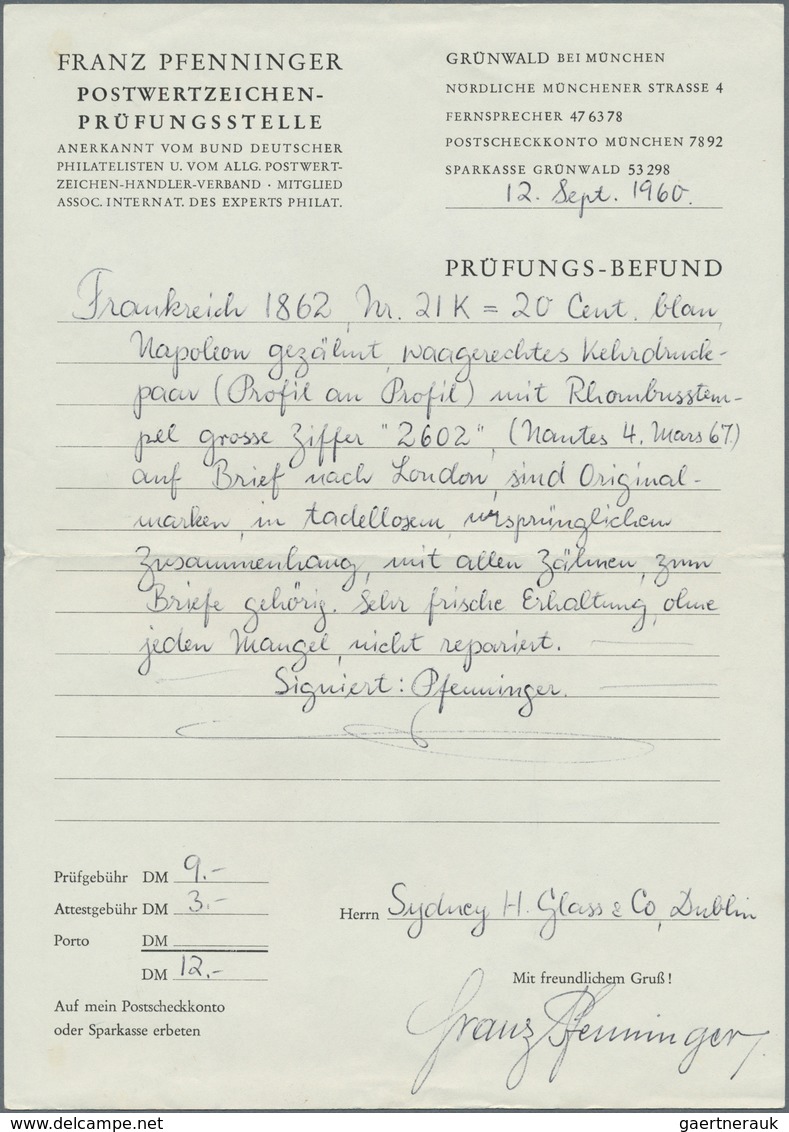 FRANZ PFENNINGER
POSTWERTZEICHEN-
PRÜFUNGSSTELLE
ANERKANNT VOM BUND DEUTSCHER
PHILATELISTEN U. VOM ALLG. POSTWERT-
ZEICHEN-HÄNDLER-VERBAND · MITGLIED
ASSOC. INTERNAT. DES EXPERTS PHILAT.
GRÜNWALD BEI MÜNCHEN
NÖRDLICHE MÜNCHENER STRASSE 4
FERNSPRECHER 47 63 78
POSTSCHECKKONTO MÜNCHEN 78 92
SPARKASSE GRÜNWALD 53 298
12. Sept. 1960.
PRÜFUNGS-BEFUND
Frankreich 1862, Nr. 21K = 20 Cent. blau,
Napoleon gezähnt, waagerechtes Kehrdruck-
paar (Profil an Profil) mit Rhombusstem-
pel grosse Ziffer "2602", (Nantes 4. Mars 67.)
auf Brief nach London, sind Original-
marken, in tadellosem, ursprünglichem
Zusammenhang, mit allen Zähnen, zum
Briefe gehörig. Sehr frische Erhaltung, ohne
jeden Mangel, nicht repariert.
Signiert: Pfenninger.
Prüfgebühr DM 9.-
Attestgebühr DM 3.-
Porto DM
DM 12.-
Auf mein Postscheckkonto
oder Sparkasse erbeten
Herrn Sydney H. Glass & Co, Dublin
Mit freundlichem Gruß!
Franz Pfenninger.
www.delcampe.net
gaertnerauk